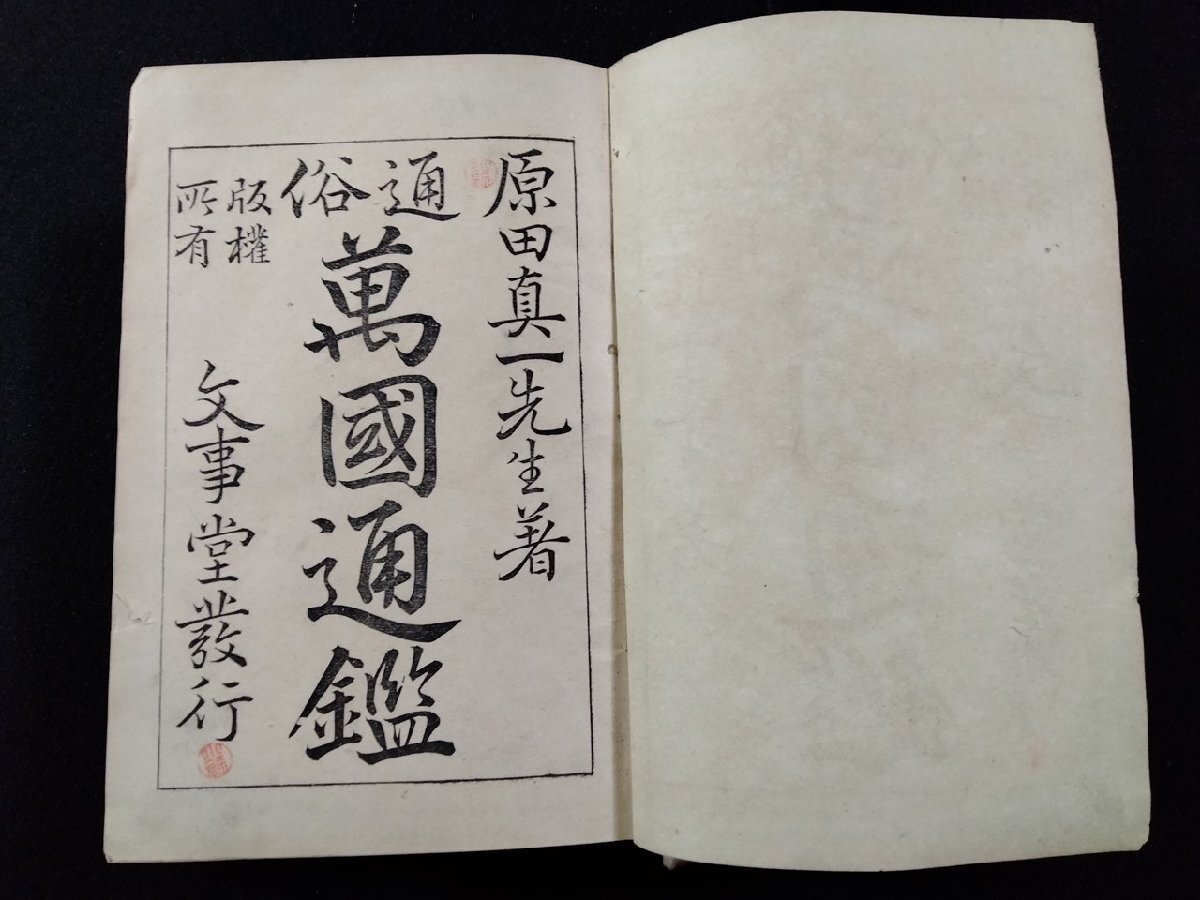 原田真一先生著
通俗
萬國通鑑
版權
所有
文事堂發行